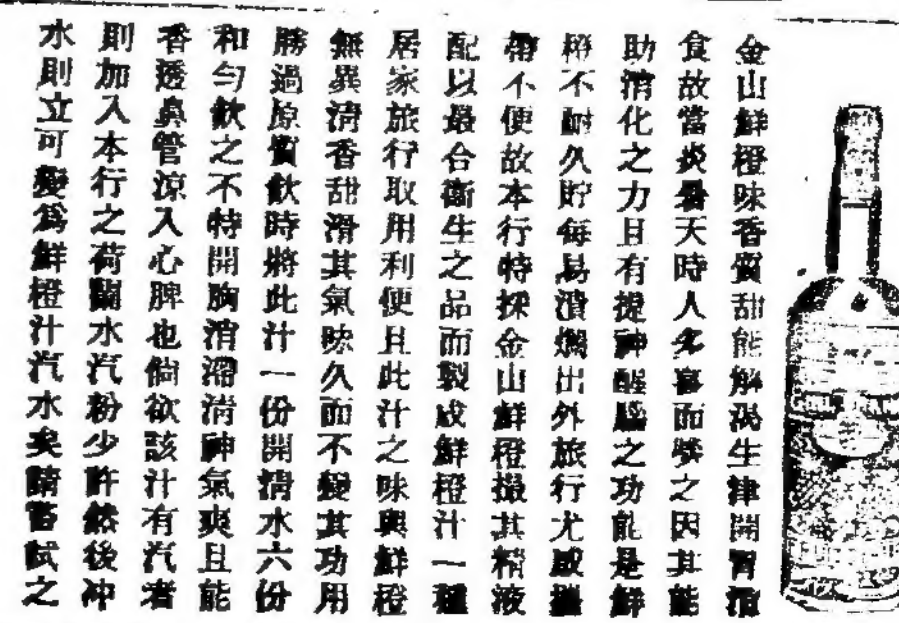 金山鮮橙味香質甜能解渴生津開胃消
食故當炎暑天時人多喜而嗜之因其能
助消化之力且有提神醒腦之功能是鮮
橙不耐久貯每易潰爛出外旅行尤感攜
帶不便故本行特採金山鮮橙撮其精液
配以最合衞生之品而製成鮮橙汁一種
居家旅行取用利便且此汁之味與鮮橙
無異清香甜滑其氣味久而不變其功用
勝過原質飲時將此汁一份開清水六份
和勻飲之不特開胸消滯清神氣爽且能
香透鼻管涼入心脾也倘欲該汁有汽者
則加入本行之荷蘭水汽粉少許然後冲
水則立可變爲鮮橙汁汽水矣請嘗試之